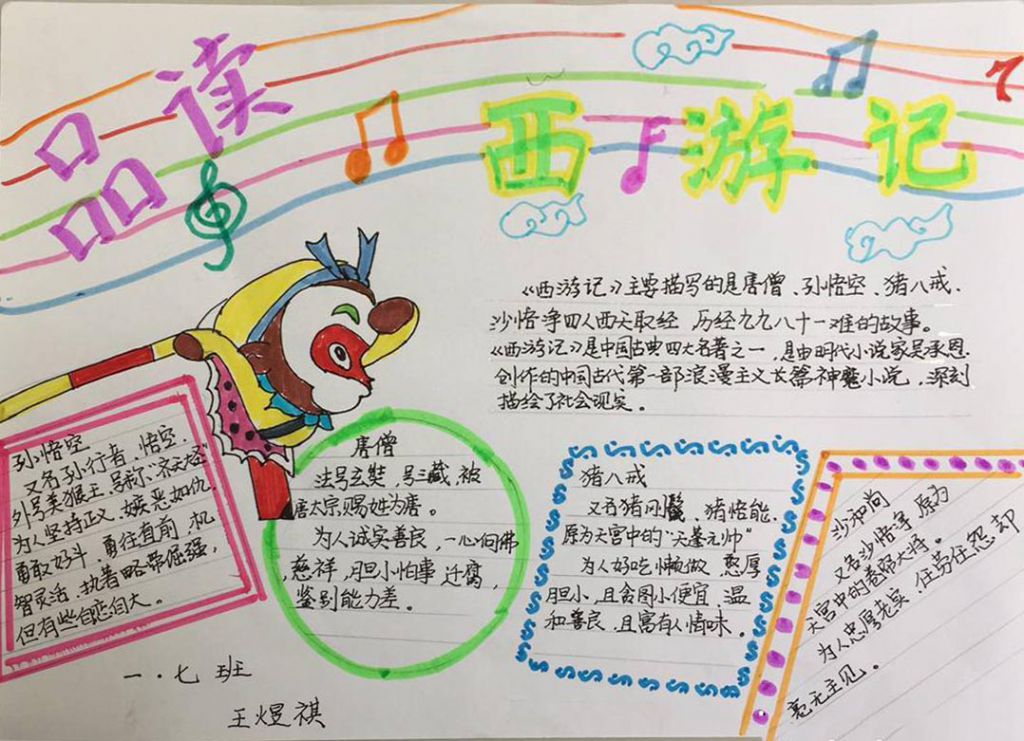 品读
西游记
《西游记》主要描写的是唐僧、孙悟空、猪八戒、
沙悟净四人西天取经 历经九九八十一难的故事。
《西游记》是中国古典四大名著之一,是由明代小说家吴承恩
创作的中国古代第一部浪漫主义长篇神魔小说,深刻
描绘了社会现实。
孙悟空
又名孙行者、悟空、
外号美猴王、号称“齐天大圣”
为人坚持正义、嫉恶如仇、
勇敢好斗、勇往直前,机
智灵活、执着略带倔强,
但有些自恋自大。
唐僧
法号玄奘,号三藏,被
唐太宗赐姓为唐。
为人诚实善良,一心向佛
,慈祥,胆小怕事 迂腐,
鉴别能力差。
猪八戒
又名猪刚鬣、猪悟能,
原为天宫中的“天蓬元帅”
为人好吃懒做 憨厚
胆小,且贪图小便宜,温
和善良,且富有人情味。
沙和尚
又名沙悟净 原为
天宫中的卷帘大将。
为人忠厚老实,任劳任怨 却
毫无主见。
一·七 班
王煜祺